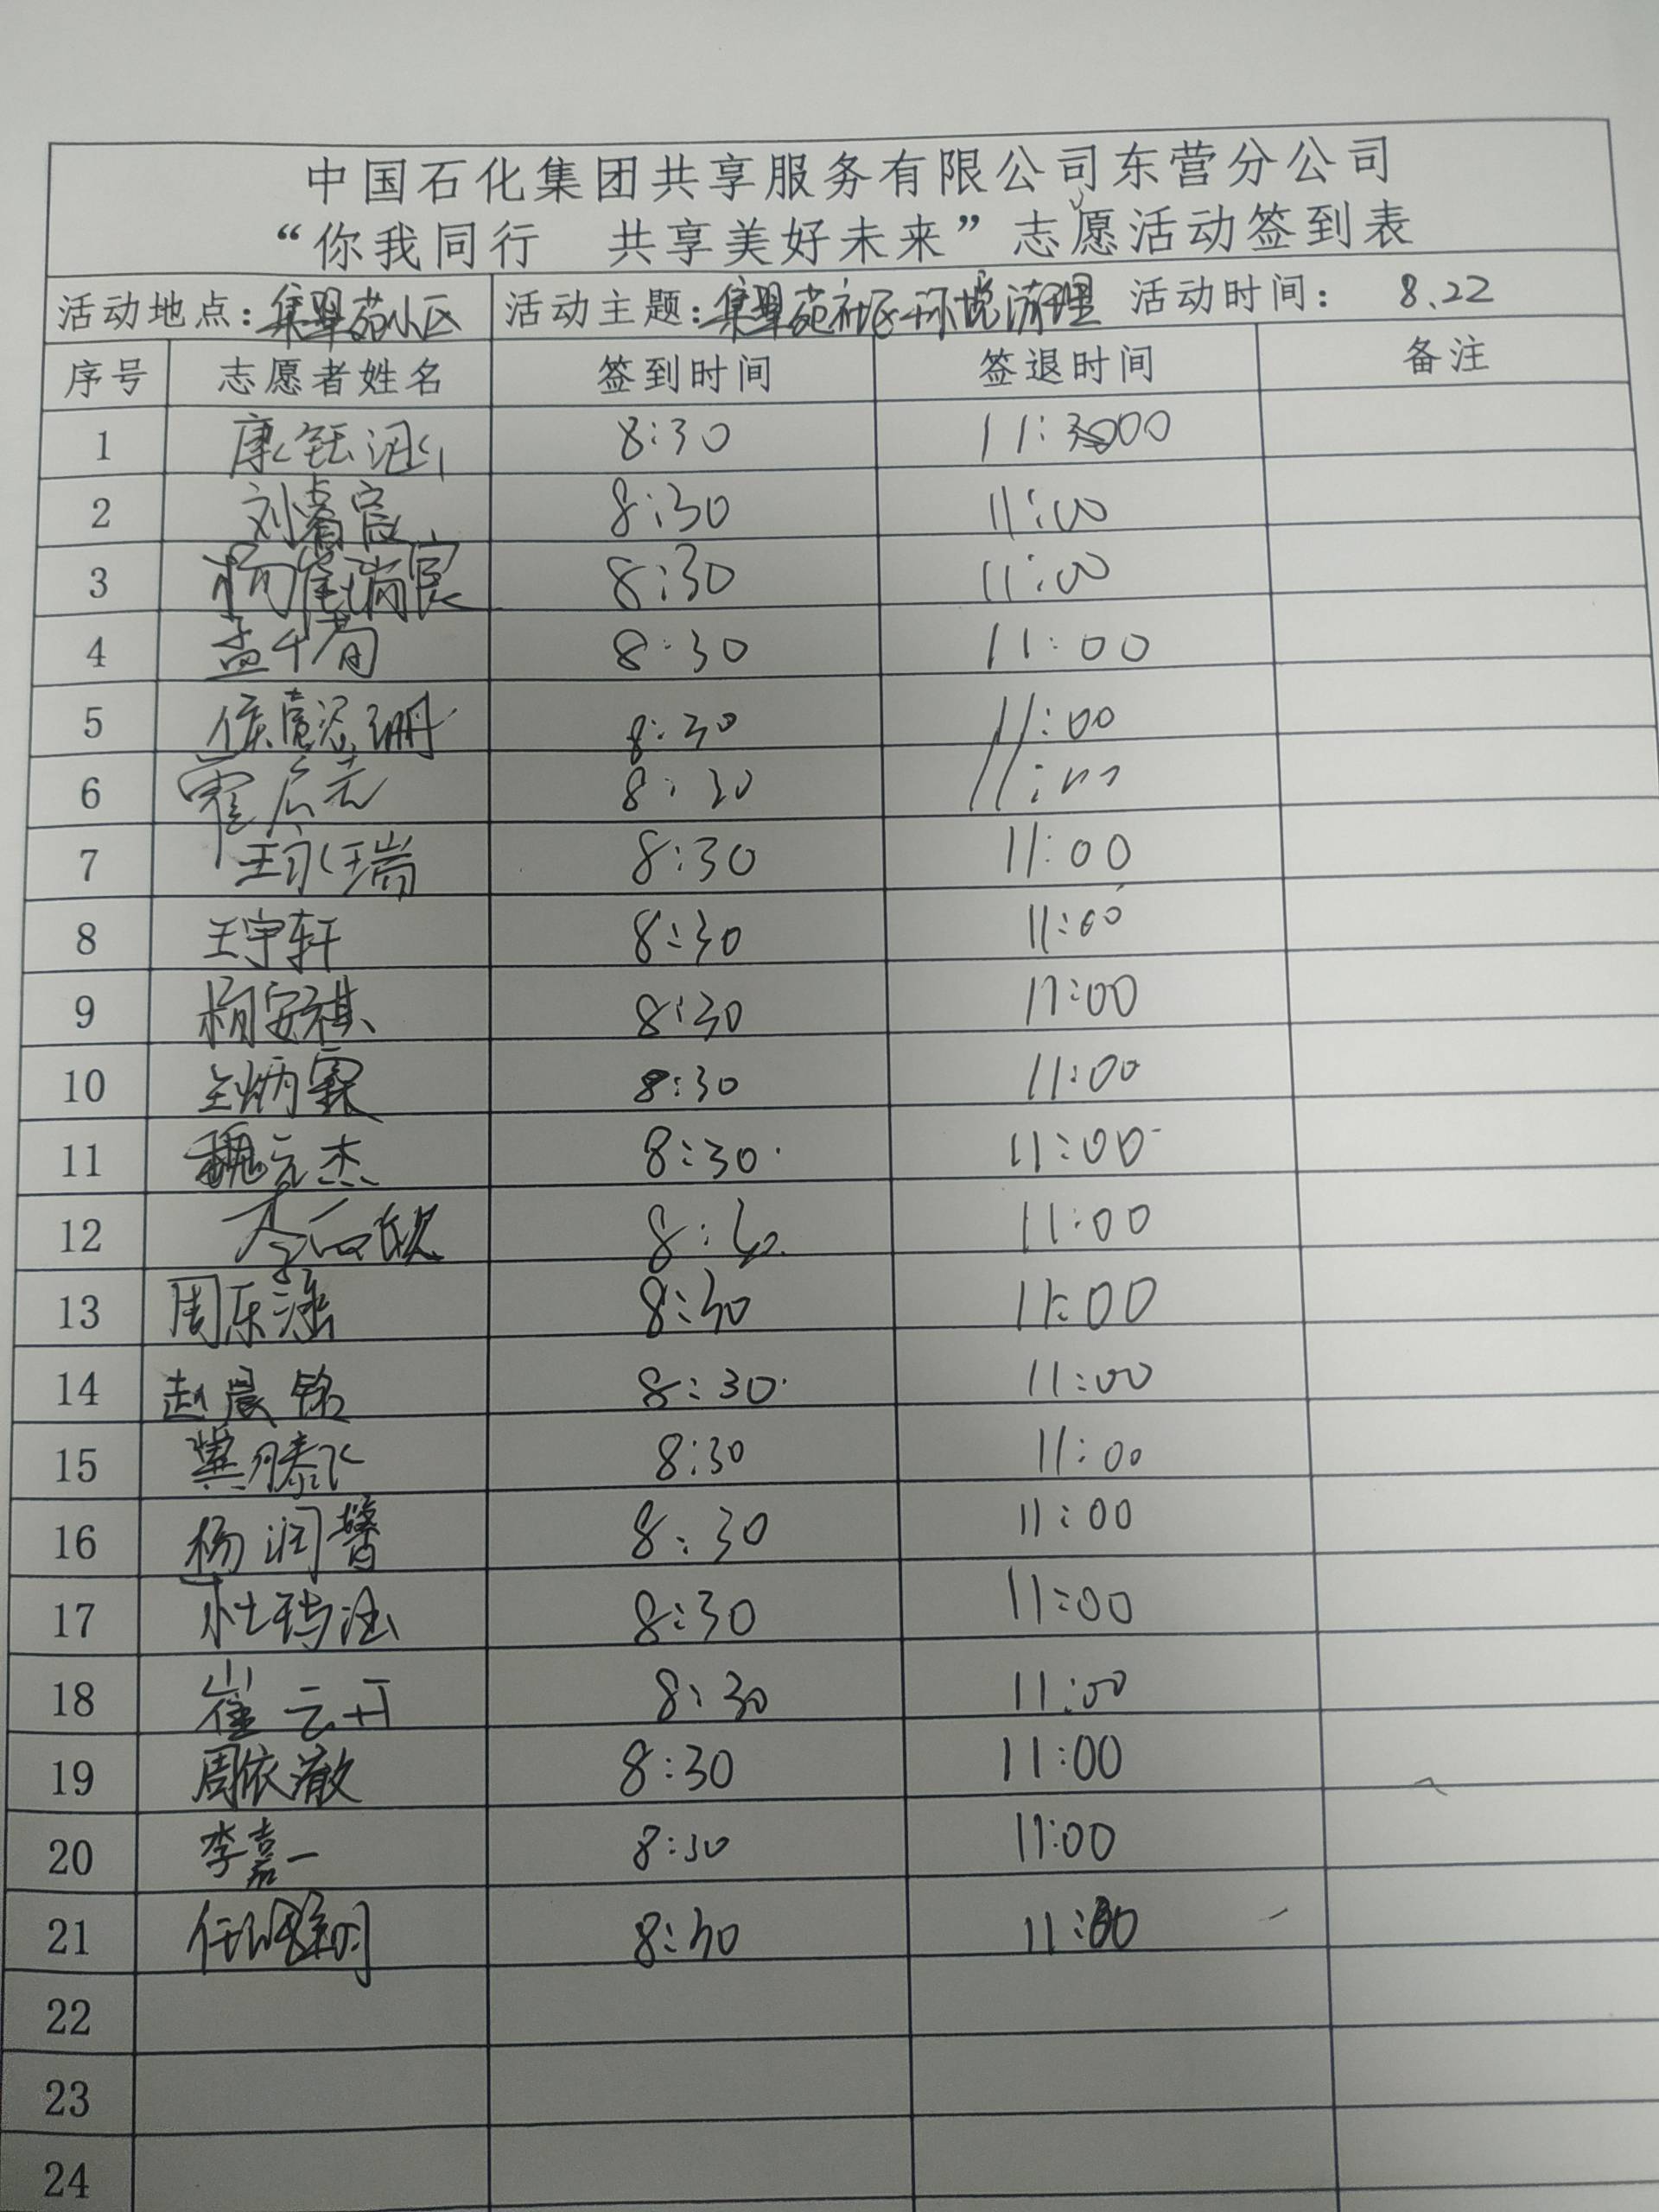 中国石化集团共享服务有限公司东营分公司
“你我同行 共享美好未来”志愿活动签到表
活动地点：集翠苑小区 活动主题：集翠苑社区环境清理 活动时间： 8.22
序号 志愿者姓名 签到时间 签退时间 备注
1 康钰涵 8:30 11:00
2 刘睿宸 8:30 11:00
3 杨崔瑞宸 8:30 11:00
4 孟千荀 8:30 11:00
5 8:30 11:00
6 8:30 11:00
7 王永瑞 8:30 11:00
8 王宇轩 8:30 11:00
9 杨安祺 8:30 11:00
10 王炳霖 8:30 11:00
11 魏立杰 8:30 11:00
12 8:30 11:00
13 周东涵 8:30 11:00
14 赵晨铭 8:30 11:00
15 冀腾飞 8:30 11:00
16 杨润馨 8:30 11:00
17 杜玥涵 8:30 11:00
18 崔云开 8:30 11:00
19 周依澈 8:30 11:00
20 李嘉一 8:30 11:00
21 8:30 11:00
22
23
24